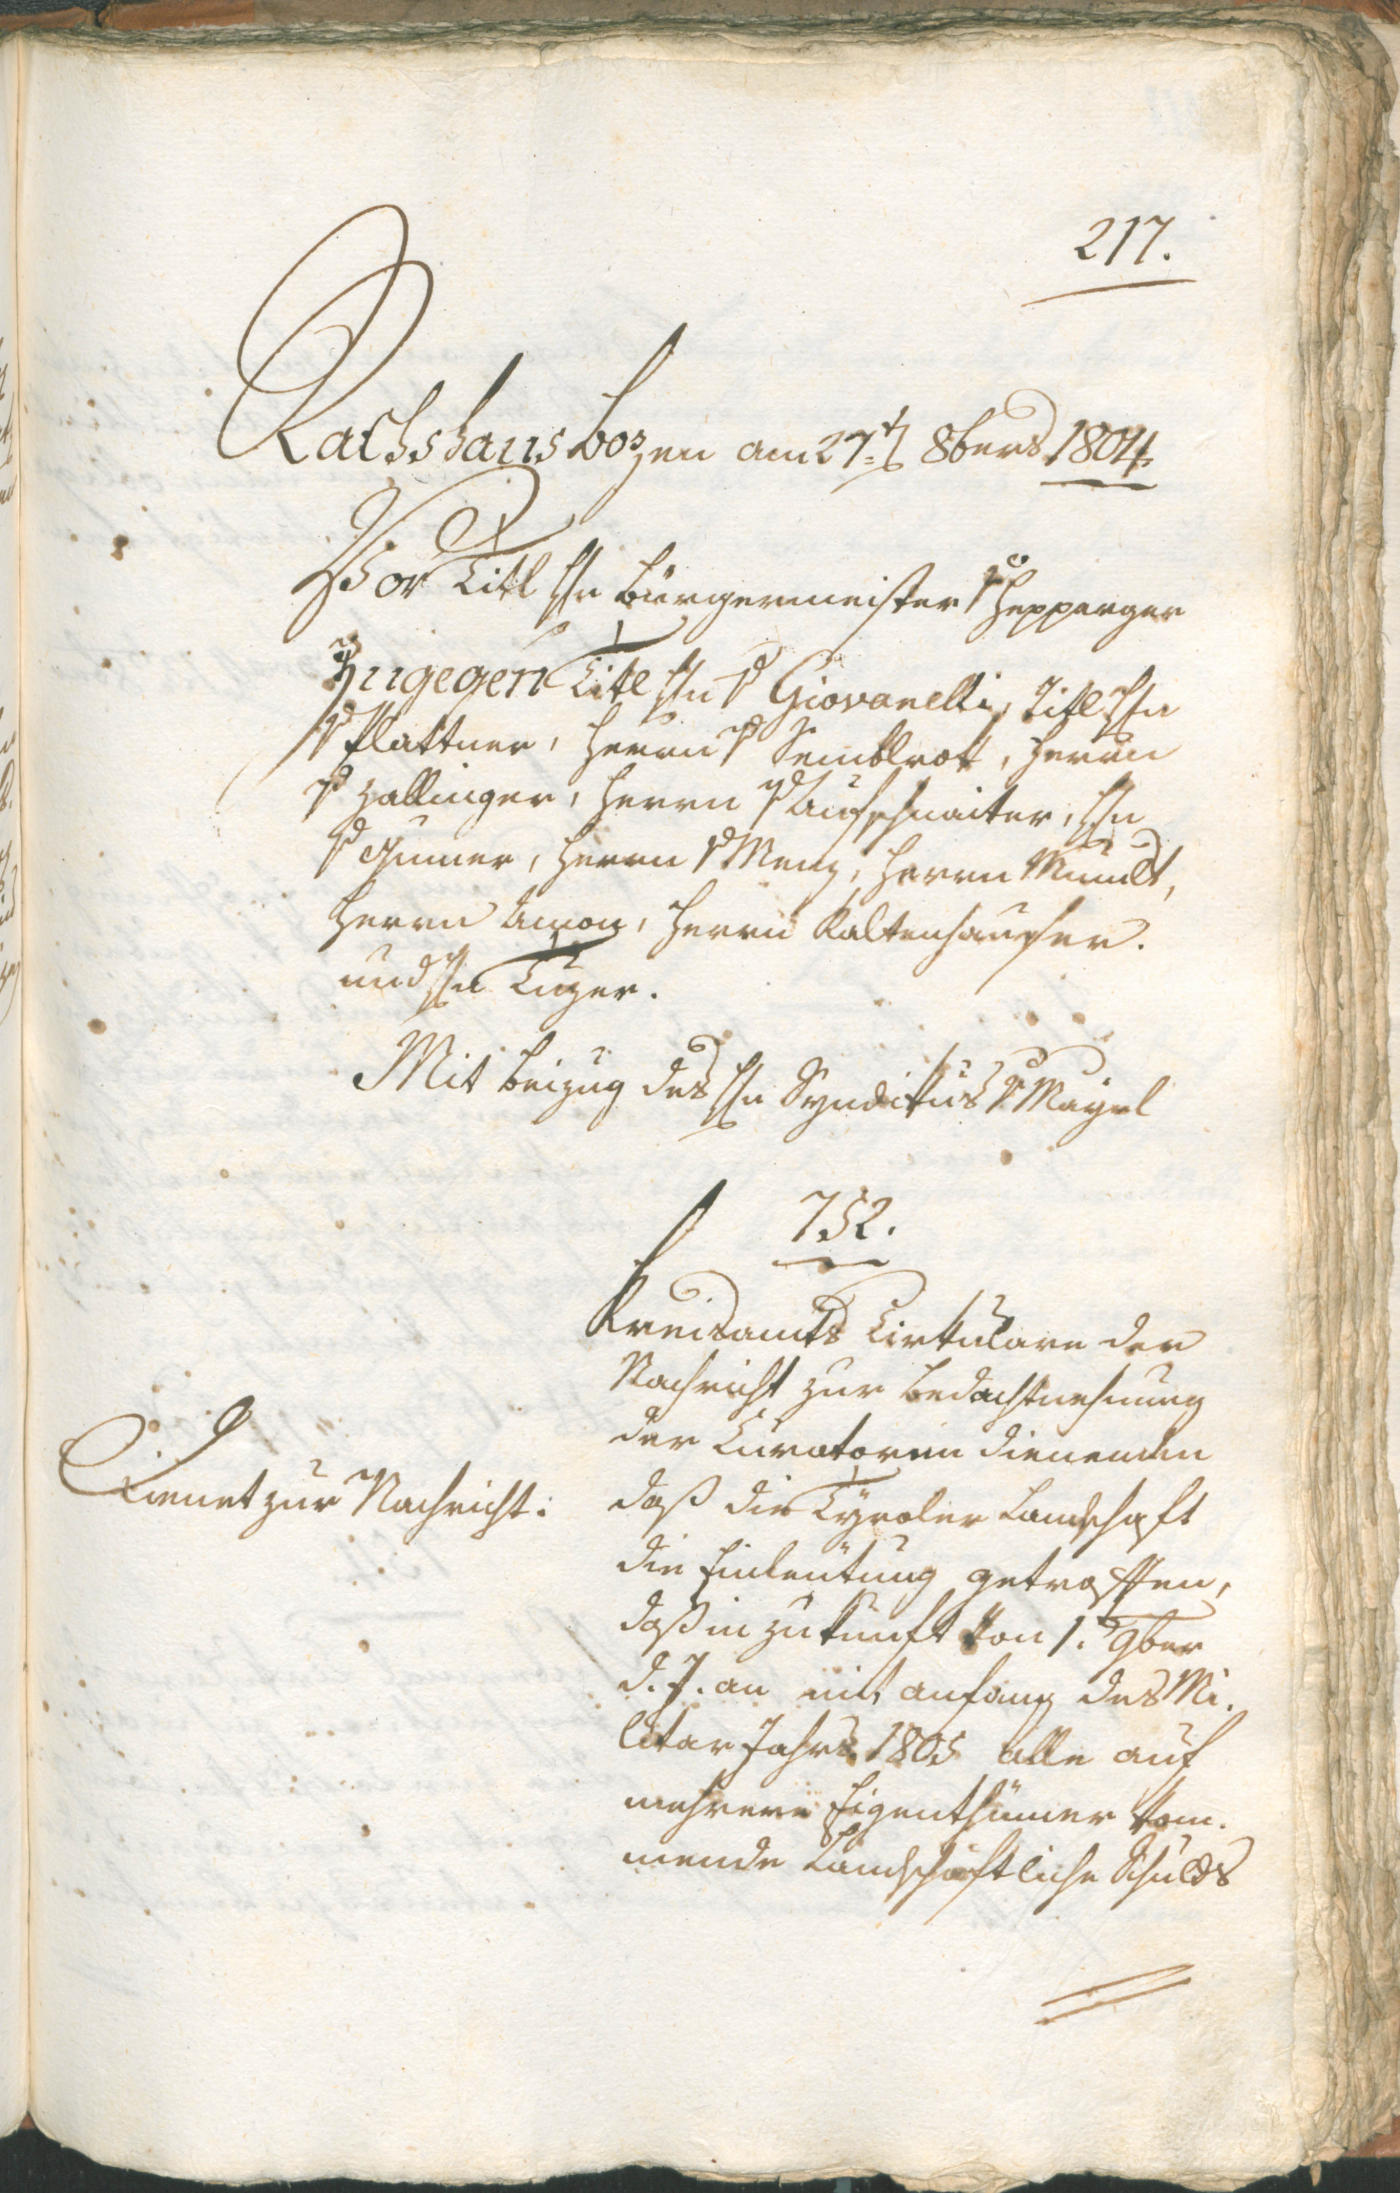 217.
Rathshaus Bozen am 27t 8bers 1804.
Vor Titl Hr Bürgermeister v Hepperger
Zugegen Titl Hr v Giovanelli, Titl Hr
v Plattner, Herrn v Semblrok, Herrn
v Zallinger, Herrn v Aufschnaiter, Hr
v Gumer, Herrn v Menz, Herrn Mumelt,
Herrn Amon, Herrn Kaltenhauser.
und Hr Tuzer.
Mit Beizug des Hr Syndikus v Mayrl
752.
Kreisamts Cirkulare der
Nachricht zur Bedachtnehmung
der Curatoren dienenden
daß die Tyroler Landschaft
die Einleutung getroffen,
daß in Zukunft von 1. 9ber
d. J. an mit anfang des Mi.
litar Jahrs 1805 alle auf
mehrere Eigenthümer kom.
mende Landschäftliche Schulds
Dienet zur Nachricht.